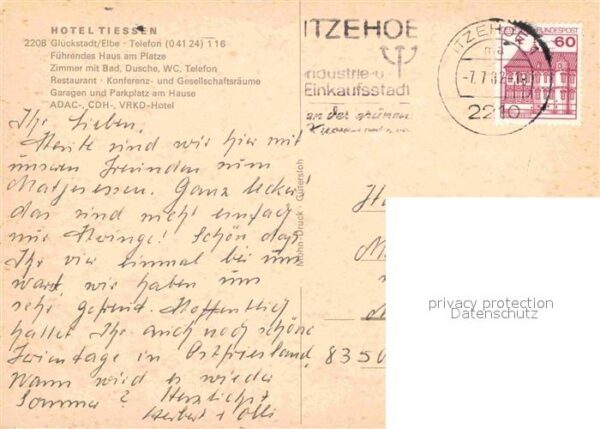 HOTEL TIESSEN
2208 Glückstadt/Elbe · Telefon (04124) 116
Führendes Haus am Platze
Zimmer mit Bad, Dusche, WC, Telefon
Restaurant · Konferenz- und Gesellschaftsräume
Garagen und Parkplatz am Hause
ADAC-, CDH-, VRKD-Hotel
Ihr Lieben,
Heute sind wir hier mit
unseren Freunden zum
Matjesessen. Ganz lecker!
das sind nicht einfach
nur Heringe! Schön daß
Ihr mal bei uns
wart, wir haben uns
sehr gefreut. Hoffentlich
hattet Ihr auch noch schöne
Ferientage in Ostfriesland.
Wann wird es wieder
Sommer? Herzlichst
Herbert + Olli
Mohn-Druck · Gütersloh
ITZEHOE
Industrie-u.
Einkaufsstadt
an der grünen
ITZEHOE 1
-7.7.82-18
2210
BUNDESPOST
60
8350
privacy protection
Datenschutz